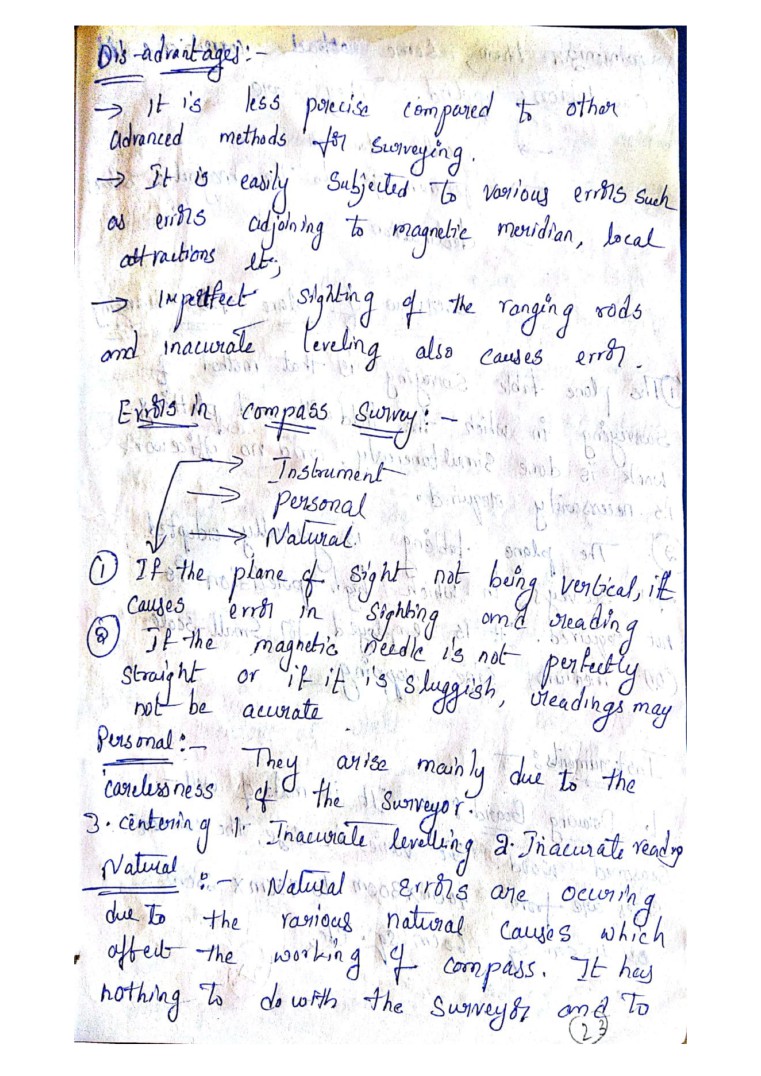 Dis-advantages:-
→ It is less precise compared to other
advanced methods for surveying.
→ It is easily subjected to various errors such
as errors adjoining to magnetic meridian, local
attractions etc;
→ Imperfect sighting of the ranging rods
and inacurate leveling also causes error.
Errors in compass survey:-
→ Instrument
→ personal
→ Natural.
① If the plane of sight not being vertical, it
causes error in sighting and reading
② If the magnetic needle is not perfectly
straight or if it is sluggish, readings may
not be acurate
Personal:- They arise mainly due to the
carelessness of the surveyor.
3. centering 1. Inacurate levelling 2. Inacurate readng
Natural:- Natural errors are occuring
due to the various natural causes which
affect the working of compass. It has
nothing to do with the surveyor and to
23